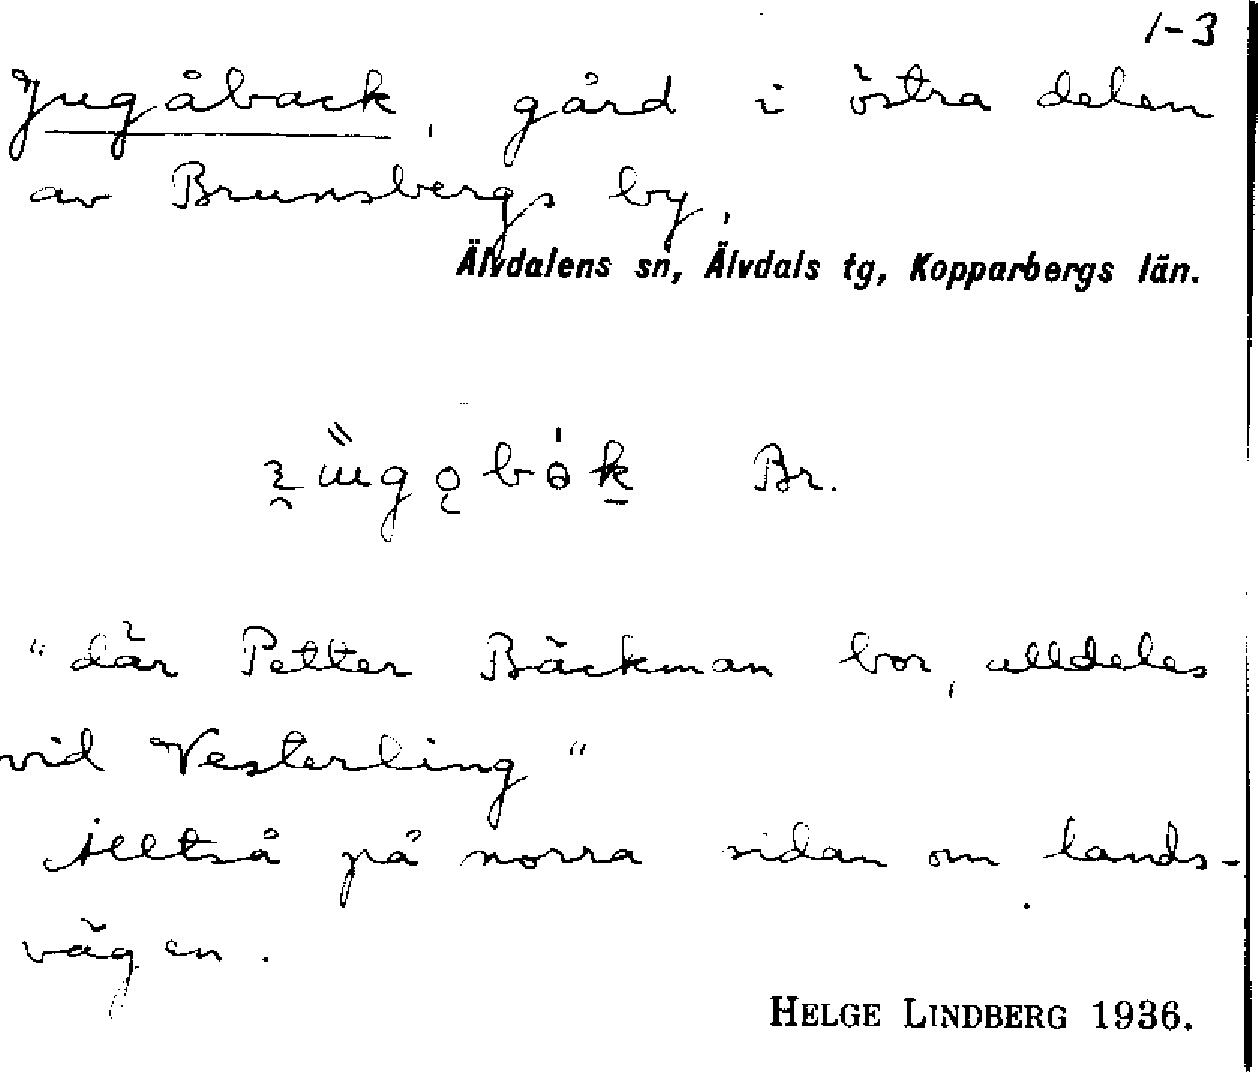 1-3
Jugåback, gård i östra delen
av Brunsbergs by,
Älvdalens sn, Älvdals tg, Kopparbergs län.
Br.
"där Petter Bäckman bor, alldeles
vid Vesterling"
Alltså på norra sidan om lands-
vägen.
HELGE LINDBERG 1936.